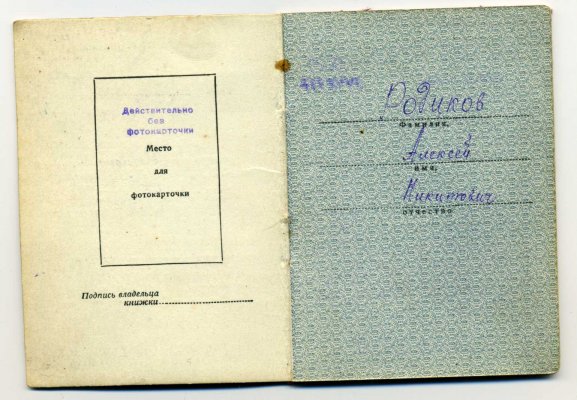 Действительно
без
фотокарточки
Место
для
фотокарточки
Подпись владельца
книжки
Родиков
фамилия,
Алексей
имя,
Никитович
отчество